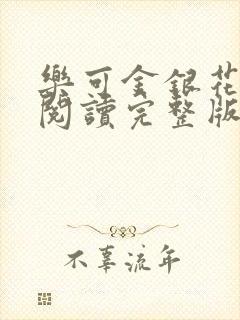 樂可金銀花
閱讀完整版
不辜流年